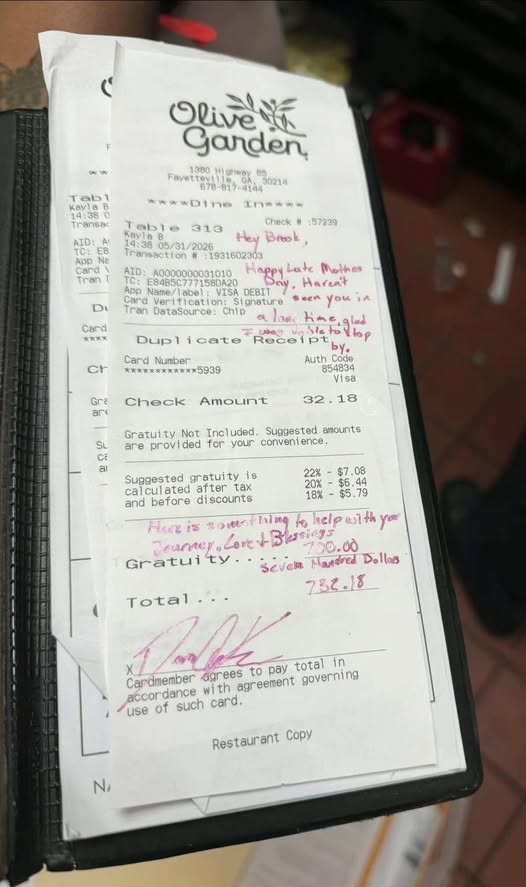 Olive
Garden
1380 Highway 85
Fayetteville, GA, 30214
678-817-4144
****Dine In****
Check # :57239
Table 313
Kayla B
14:38 05/31/2026
Transaction # :1931602303
Hey Brook,
AID: A0000000031010
TC: E84B5C777158DA20
App Name/label: VISA DEBIT
Card Verification: Signature
Tran DataSource: Chip
Happy Late Mothes
Day. Haven't
seen you in
a long time, glad
I was able to stop
by.
Duplicate Receipt
Card Number Auth Code
************5939 854834
Visa
Check Amount 32.18
Gratuity Not Included. Suggested amounts
are provided for your convenience.
Suggested gratuity is 22% - $7.08
calculated after tax 20% - $6.44
and before discounts 18% - $5.79
Here is something to help with your
Journey. Love & Blessings
Gratuity..... 700.00
Seven Hundred Dollars
Total... 732.18
X
Cardmember agrees to pay total in
accordance with agreement governing
use of such card.
Restaurant Copy
Tabl
Kayla B
14:38 0
Transac
TC: E8
App Na
Card V
Tran D
Card